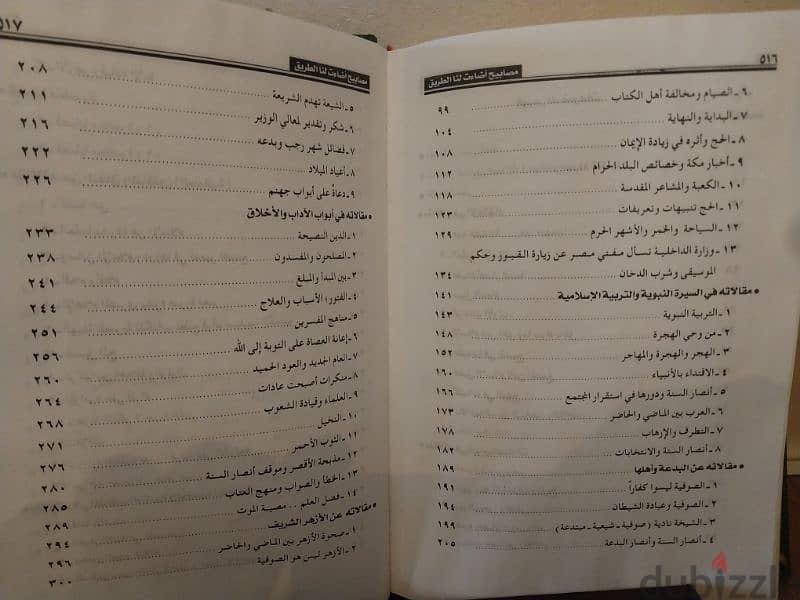 ٥١٦
مصابيح أضاءت لنا الطريق
٦ـ الصيام ومخالفة أهل الكتاب ٩٩
٧ـ البداية والنهاية ١٠٤
٨ـ الحج وأثره في زيادة الإيمان ١٠٨
٩ـ أخبار مكة وخصائص البلد الحرام ١١٢
١٠ـ الكعبة والمشاعر المقدسة ١١٨
١١ـ الحج تنبيهات وتعريفات ١٢٣
١٢ـ السياحة والخمر والأشهر الحرم ١٢٩
١٣ـ وزارة الداخلية تسأل مفتي مصر عن زيارة القبور وحكم
الموسيقى وشرب الدخان ١٣٤
● مقالاته في السيرة النبوية والتربية الإسلامية ١٤١
١ـ التربية النبوية ١٤٣
٢ـ من وحي الهجرة ١٤٨
٣ـ الهجر والهجرة والمهاجر ١٥٢
٤ـ الاقتداء بالأنبياء ١٦٠
٥ـ أنصار السنة ودورها في استقرار المجتمع ١٦٦
٦ـ العرب بين الماضي والحاضر ١٧٣
٧ـ التطرف والإرهاب ١٧٨
٨ـ أنصار السنة والانتخابات ١٨٢
● مقالاته عن البدعة وأهلها ١٨٩
١ـ الصوفية ليسوا كفاراً ١٩١
٢ـ الصوفية وعبادة الشيطان ١٩٤
٣ـ الشيخة نادية (صوفية ـ شيعية ـ مبتدعة) ١٩٩
٤ـ أنصار السنة وأنصار البدعة ٢٠٥
٥١٧
مصابيح أضاءت لنا الطريق
٥ـ الشيعة تهدم الشريعة ٢٠٨
٦ـ شكر وتقدير لمعالي الوزير ٢١١
٧ـ فضائل شهر رجب وبدعه ٢١٦
٨ـ أعياد الميلاد ٢٢٢
٩ـ دعاةٌ على أبواب جهنم ٢٢٦
● مقالاته في أبواب الآداب والأخلاق
١ـ الدين النصيحة ٢٣٣
٢ـ المصلحون والمفسدون ٢٣٨
٣ـ بين المبدأ والمبلغ ٢٤١
٤ـ الفتور: الأسباب والعلاج ٢٤٤
٥ـ مناهج المفسرين ٢٥١
٦ـ إعانة العصاة على التوبة إلى الله ٢٥٦
٧ـ العام الجديد والعود الحميد ٢٦٠
٨ـ منكرات أصبحت عادات ٢٦٤
٩ـ العلماء وقيادة الشعوب ٢٦٨
١٠ـ النخيل ٢٧١
١١ـ الثوب الأحمر ٢٧٦
١٢ـ مذبحة الأقصر وموقف أنصار السنة ٢٨٠
١٣ـ الخطأ والصواب ومنهج العتاب ٢٨٥
١٤ـ فضل العلم .. مصيبة الموت ٢٨٩
● مقالاته عن الأزهر الشريف ٢٩٤
١ـ صحوة الأزهر بين الماضي والحاضر ٢٩٦
٢ـ الأزهر ليس هو الصوفية ٣٠٠
dubizzle